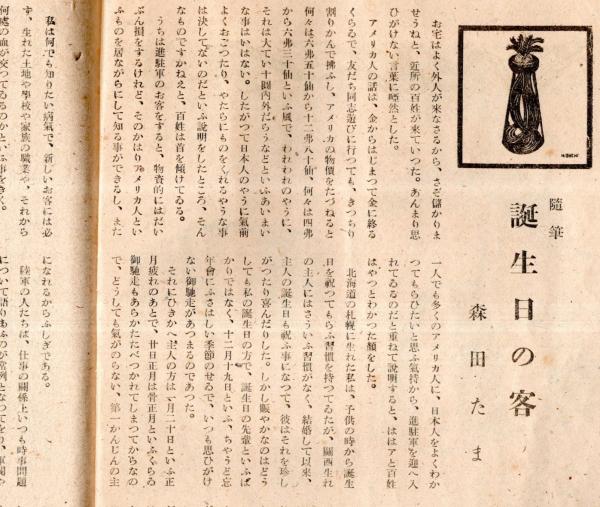 隨筆
誕生日の客
森田たま
お宅はよく外人が來なさるから、さぞ儲かりま
せうねと、近所の百姓が來ていつた。あんまり思
ひがけない言葉に啞然とした。
アメリカ人の話は、金からはじまつて金に終る
くらゐで、友だち同志遊びに行つても、きつちり
割りかんで拂ふし、アメリカの物價をたづねると
何々は六弗五十仙から十二弗八十仙、何々は四弗
から六弗三十仙といふ風で、われわれのやうに、
それは大てい十圓内外だらうなどといふあいまい
な事はいはない。したがつて日本人のやうに氣前
よくおごつたり、やたらにものをくれるやうな事
は決してないのだといふ說明をしたところ、そん
なものですかねえと、百姓は首を傾けてゐる。
うちは進駐軍のお客をすると、物資的にはだい
ぶん損をするけれど、そのかはりアメリカ人とい
ふものを居ながらにして知る事ができるし、また
一人でも多くのアメリカ人に、日本人をよくわか
つてもらひたいと思ふ氣持から、進駐軍を迎へ入
れてゐるのだと重ねて說明すると、ははアと百姓
はやつとわかつた顏をした。
北海道の札幌に生れた私は、子供の時から誕生
日を祝つてもらふ習慣を持つてゐたが、關西生れ
の主人にはさういふ習慣がなく、結婚して以來、
主人の誕生日も祝ふ事になつて、彼はそれを珍し
がつたり喜んだりした。しかし賑やかなのはどう
しても私の誕生日の方で、誕生日の先輩といふば
かりではなく、十二月十九日といふ、ちやうど忘
年會にふさはしい季節のせゐで、いつも思ひがけ
ない御馳走があつまるのであつた。
それにひきかへ主人の方は一月二十日といふ正
月疲れのあとで、廿日正月は骨正月といふくらゐ
御馳走もあらかたたべつかれてしまつてからなの
で、どうしても氣がのらない、第一かんじんの主
私は何でも知りたい病氣で、新しいお客には必
ず、生れた土地や學校や家族の職業や、それから
何處の血が交つてゐるのかといふ事をきく。
になれるからふしぎである。
陸軍の人たちは、仕事の關係上いつも時事問題
について語りあふのが常例となつてをり、軍閥や